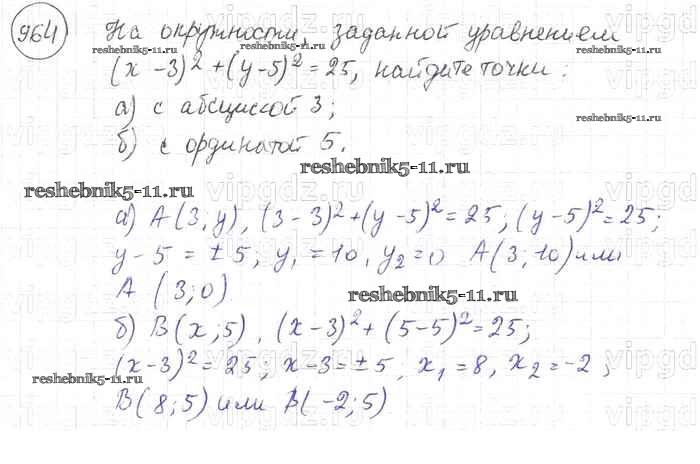 964
На окружности, заданной уравнением
(x - 3)² + (y - 5)² = 25, найдите точки:
а) с абсциссой 3;
б) с ординатой 5.
а) A(3, y), (3 - 3)² + (y - 5)² = 25; (y - 5)² = 25;
y - 5 = ± 5, y₁ = 10, y₂ = 0 A(3; 10) или
A (3; 0)
б) B(x; 5), (x - 3)² + (5 - 5)² = 25;
(x - 3)² = 25; x - 3 = ± 5, x₁ = 8, x₂ = -2;
B(8; 5) или B(-2; 5)
reshebnik5-11.ru
reshebnik5-11.ru
reshebnik5-11.ru
reshebnik5-11.ru
reshebnik5-11.ru
reshebnik5-11.ru
reshebnik5-11.ru
vipgdz.ru